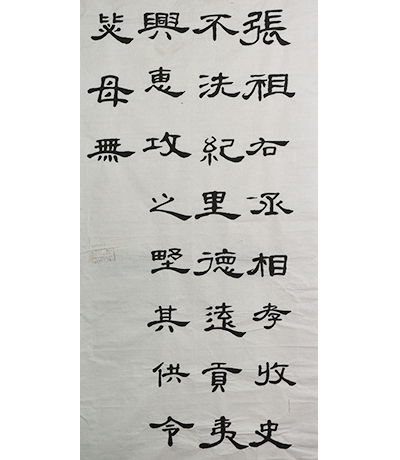 張祖右丞相孝收史
不洗紀里德遠貢夷
興恵攻之野其供令
毖母無